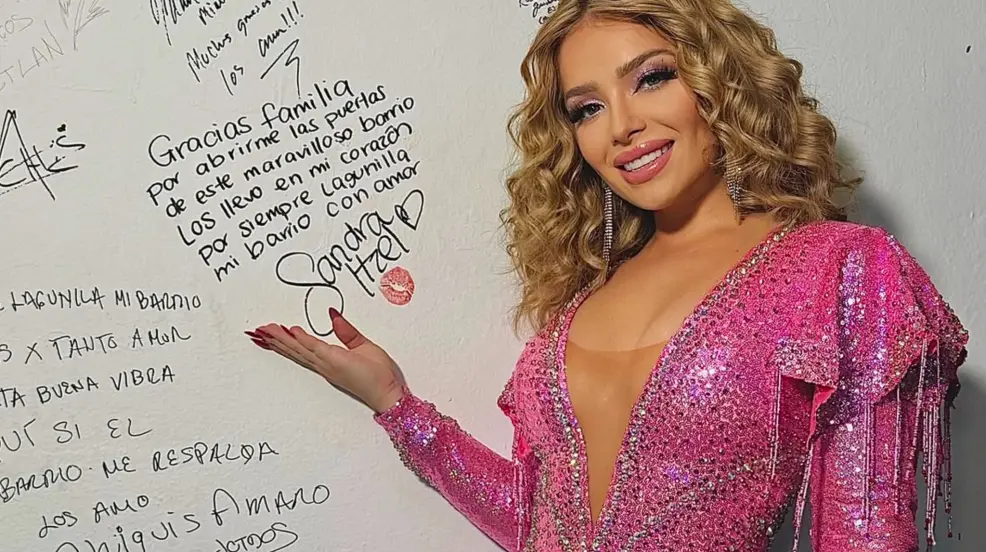 Muchas gracias
los amu!!!
Gracias familia
por abrirme las puertas
de este maravilloso barrio
Los llevo en mi corazón
por siempre Lagunilla
mi barrio con amor
Sandra
Itzel
LAGUNILLA MI BARRIO
S X TANTO AMOR
TA BUENA VIBRA
SI EL
BARRIO ME RESPALDA
LOS AMO
Chiquis Amaro